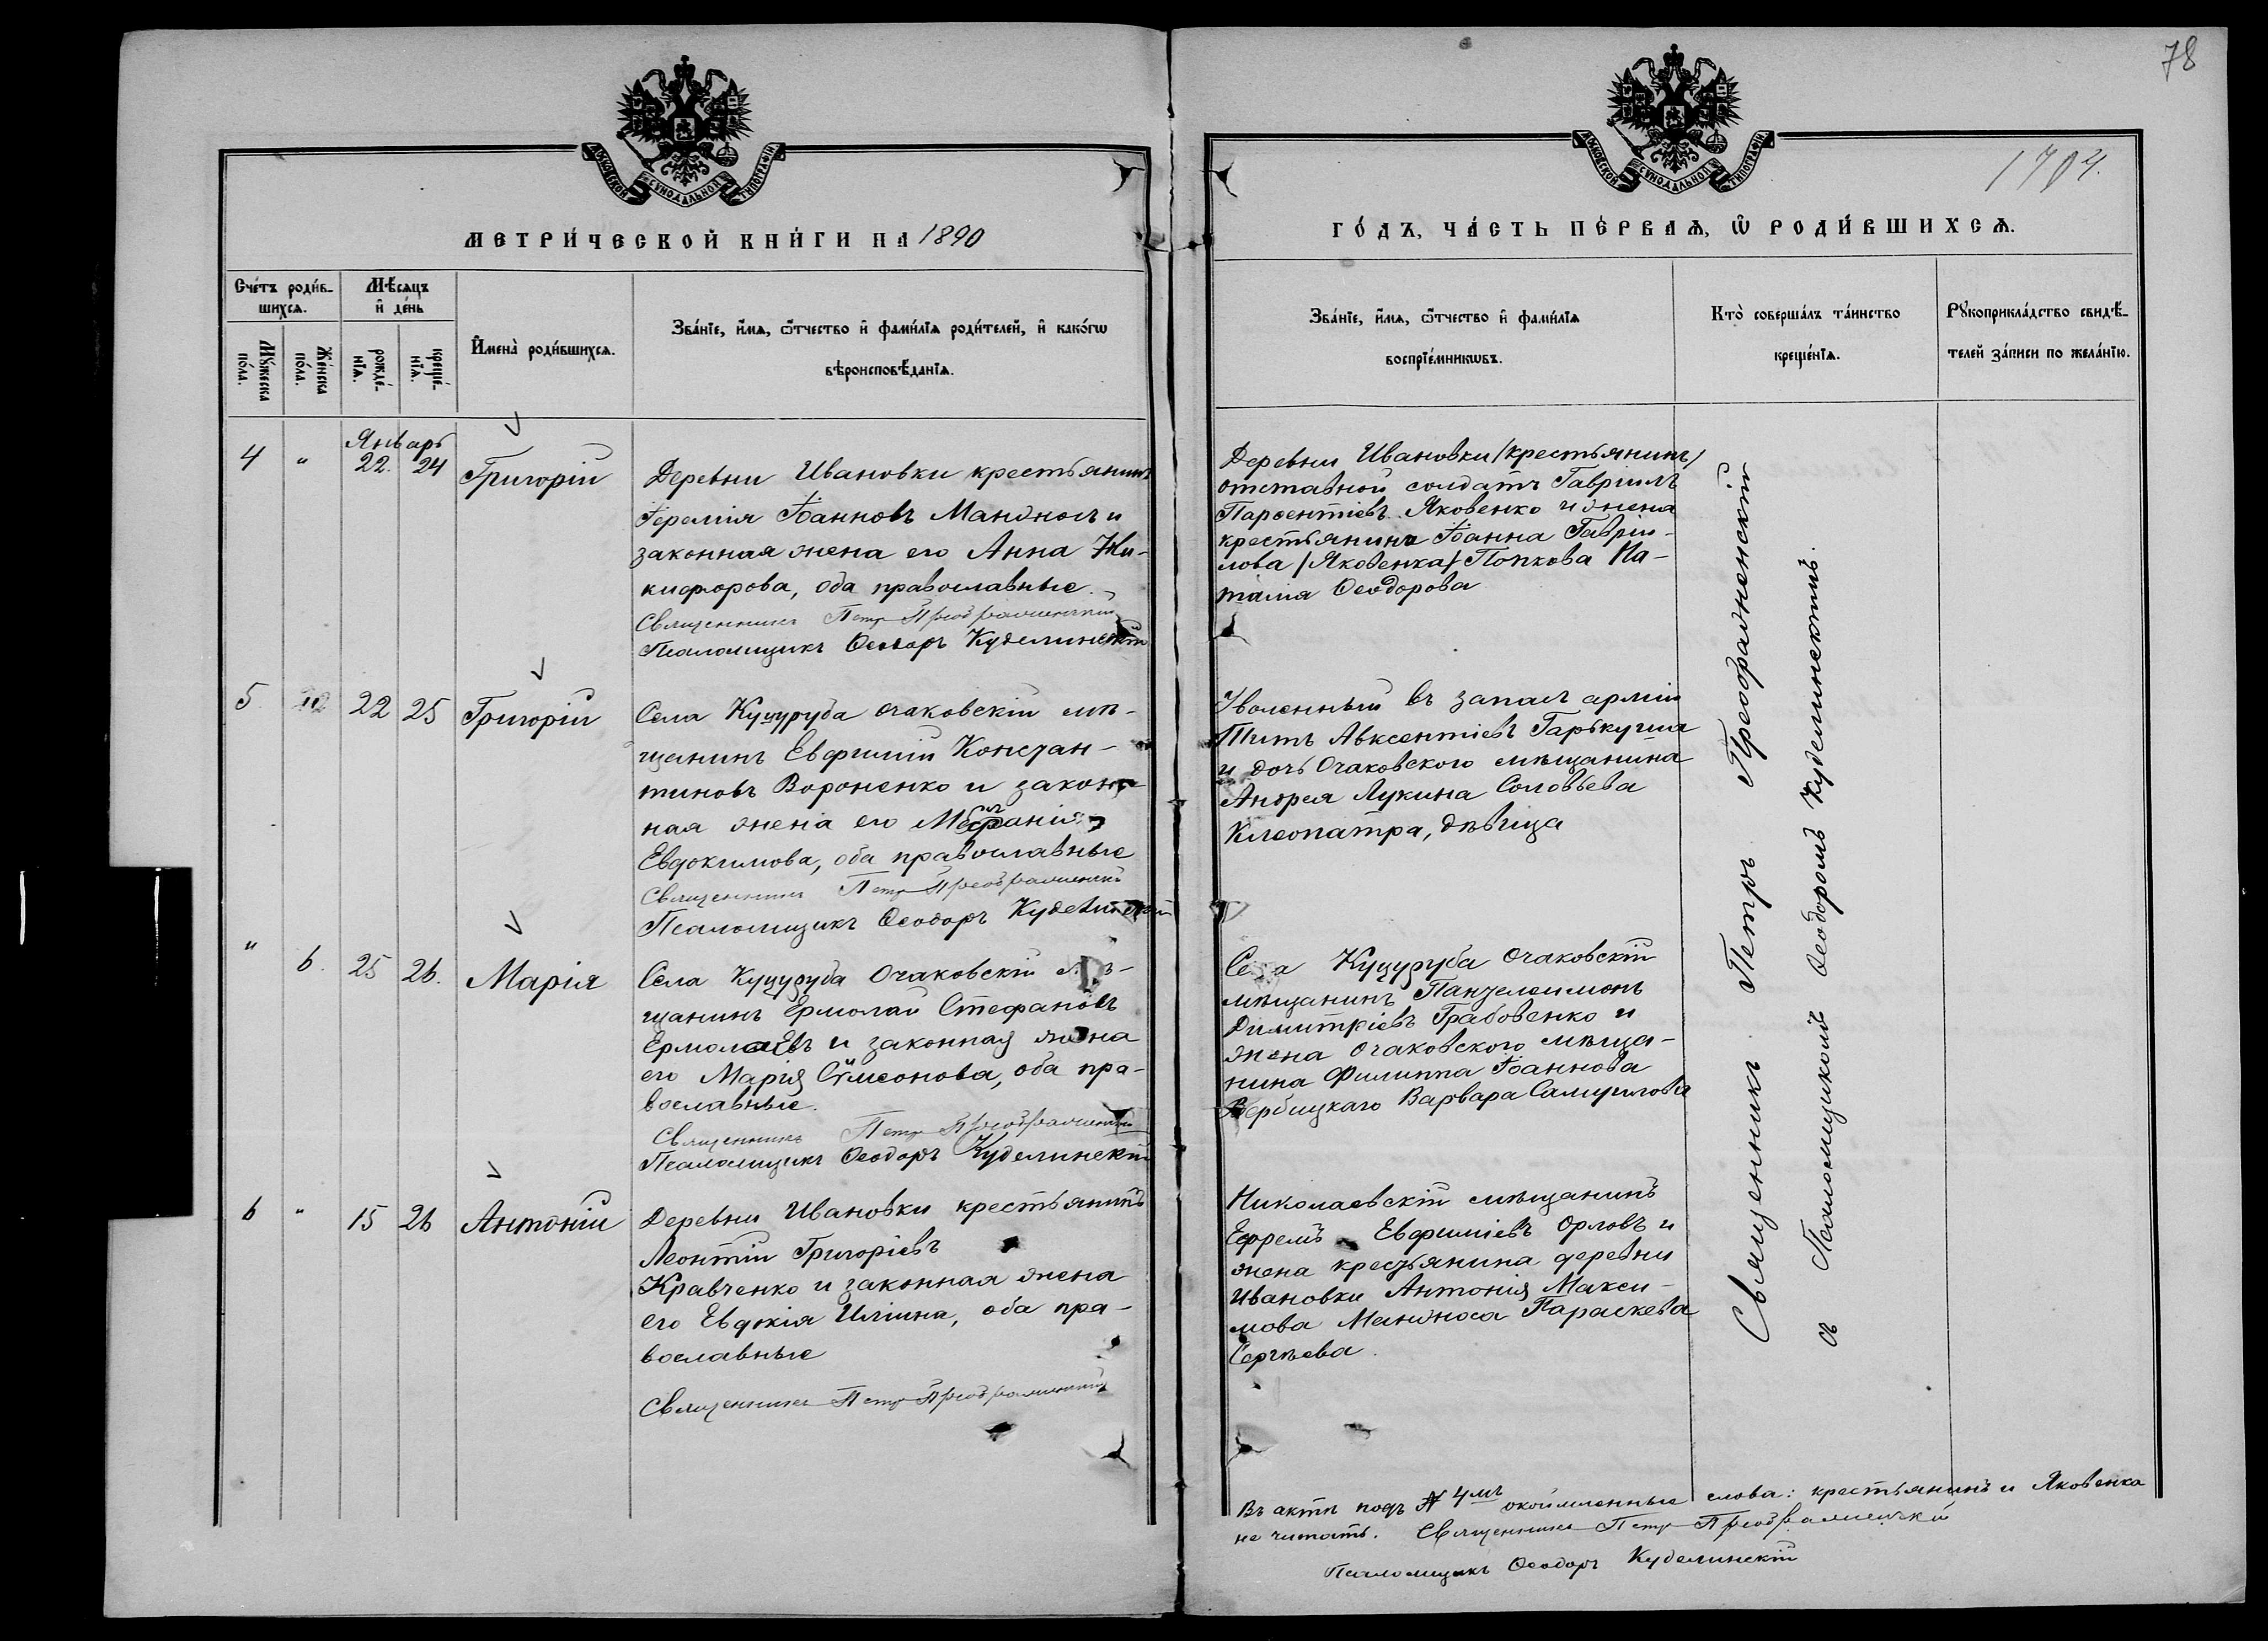 78
МОСКОВСКОЙ СѴНОДАЛЬНОЙ ТИПОГРАФІИ.
МОСКОВСКОЙ СѴНОДАЛЬНОЙ ТИПОГРАФІИ.
1704.
МЕТРИ́ЧЕСКОЙ КНИ́ГИ НА 1890
ГО́ДЪ, ЧА́СТЬ ПЕ́РВАѦ, Ѡ҆ РОДИ́ВШИХСѦ.
Сче́тъ роди́в-
шихсѧ.
Мѣ́сѧцъ
и҆ де́нь
Мꙋ́жеска
по́ла.
Же́нска
по́ла.
рожде́-
нїѧ.
креще́-
нїѧ.
И҆мена̀ роди́вшихсѧ.
Зва́нїе, и҆́мѧ, ѻ҆́тчество и҆ фами́лїѧ роди́телей, и҆ како́гѡ
вѣроисповѣ́данїѧ.
Зва́нїе, и҆́мѧ, ѻ҆́тчество и҆ фами́лїѧ
воспрїе́мникѡвъ.
Кто̀ соверша́лъ та́инство
креще́нїѧ.
Рꙋкоприкла́дство свидѣ́-
телей за́писи по жела́нїю.
Январь
4 " 22. 24 Григорій
Деревни Ивановки крестьянинъ
Іеремія Іоанновъ Мандносъ и
законная жена его Анна Ни-
кифорова, оба православные.
Священникъ Петръ Преображенскій
Псаломщикъ Ѳеодоръ Куделинскій
Деревни Ивановки /крестьянинъ/
отставной солдатъ Гавріилъ
Парѳентіевъ Яковенко и жена
крестьянина Іоанна Гаврiи-
лова /Яковенка/ Попкова На-
талія Ѳеодорова
5 22 25 Григорій
Села Куцуруба Очаковскій мѣ-
щанинъ Евфимій Констан-
тиновъ Вороненко и закон-
ная жена его
Евдокимова, оба православные
Священникъ Петръ Преображенскій
Псаломщикъ Ѳеодоръ Куделинскій
Уволенный въ запасъ арміи
Титъ Авксентіевъ Гарькуша
и дочь Очаковского мѣщанина
Андрея Лукина Соловьева
Клеопатра, дѣвица
" 6. 25 26. Марія
Села Куцуруба Очаковскій мѣ-
щанинъ Ермолай Стефановъ
Ермолаевъ и законная жена
его Марія Сѵмеонова, оба пра-
вославные.
Священникъ Петръ Преображенскій
Псаломщикъ Ѳеодоръ Куделинскій
Села Куцуруба Очаковскій
мѣщанинъ Пантелеимонъ
Димитріевъ Грабовенко и
жена Очаковского мѣща-
нина Филиппа Іоаннова
Вербицкаго Варвара Самуилова
6 " 15 26 Антоній
Деревни Ивановки крестьянинъ
Леонтій Григоріевъ
Кравченко и законная жена
его Евдокія Иліина, оба пра-
вославные
Священникъ Петръ Преображенскій
Николаевскій мѣщанинъ
Ефремъ Евфиміевъ Орловъ и
жена крестьянина деревни
Ивановки Антонія Макси-
мова Мандноса Параскева
Сергѣева.
Священникъ Петръ Преображенскій
съ Псаломщикомъ Ѳеодоромъ Куделинскимъ.
Въ актѣ подъ № 4мъ окоймленные слова: крестьянинъ и Яковенка
не читать. Священникъ Петръ Преображенскій
Псаломщикъ Ѳеодоръ Куделинскій